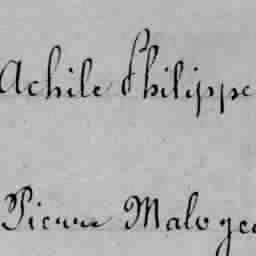 Achile Philippe
Pierre Malo